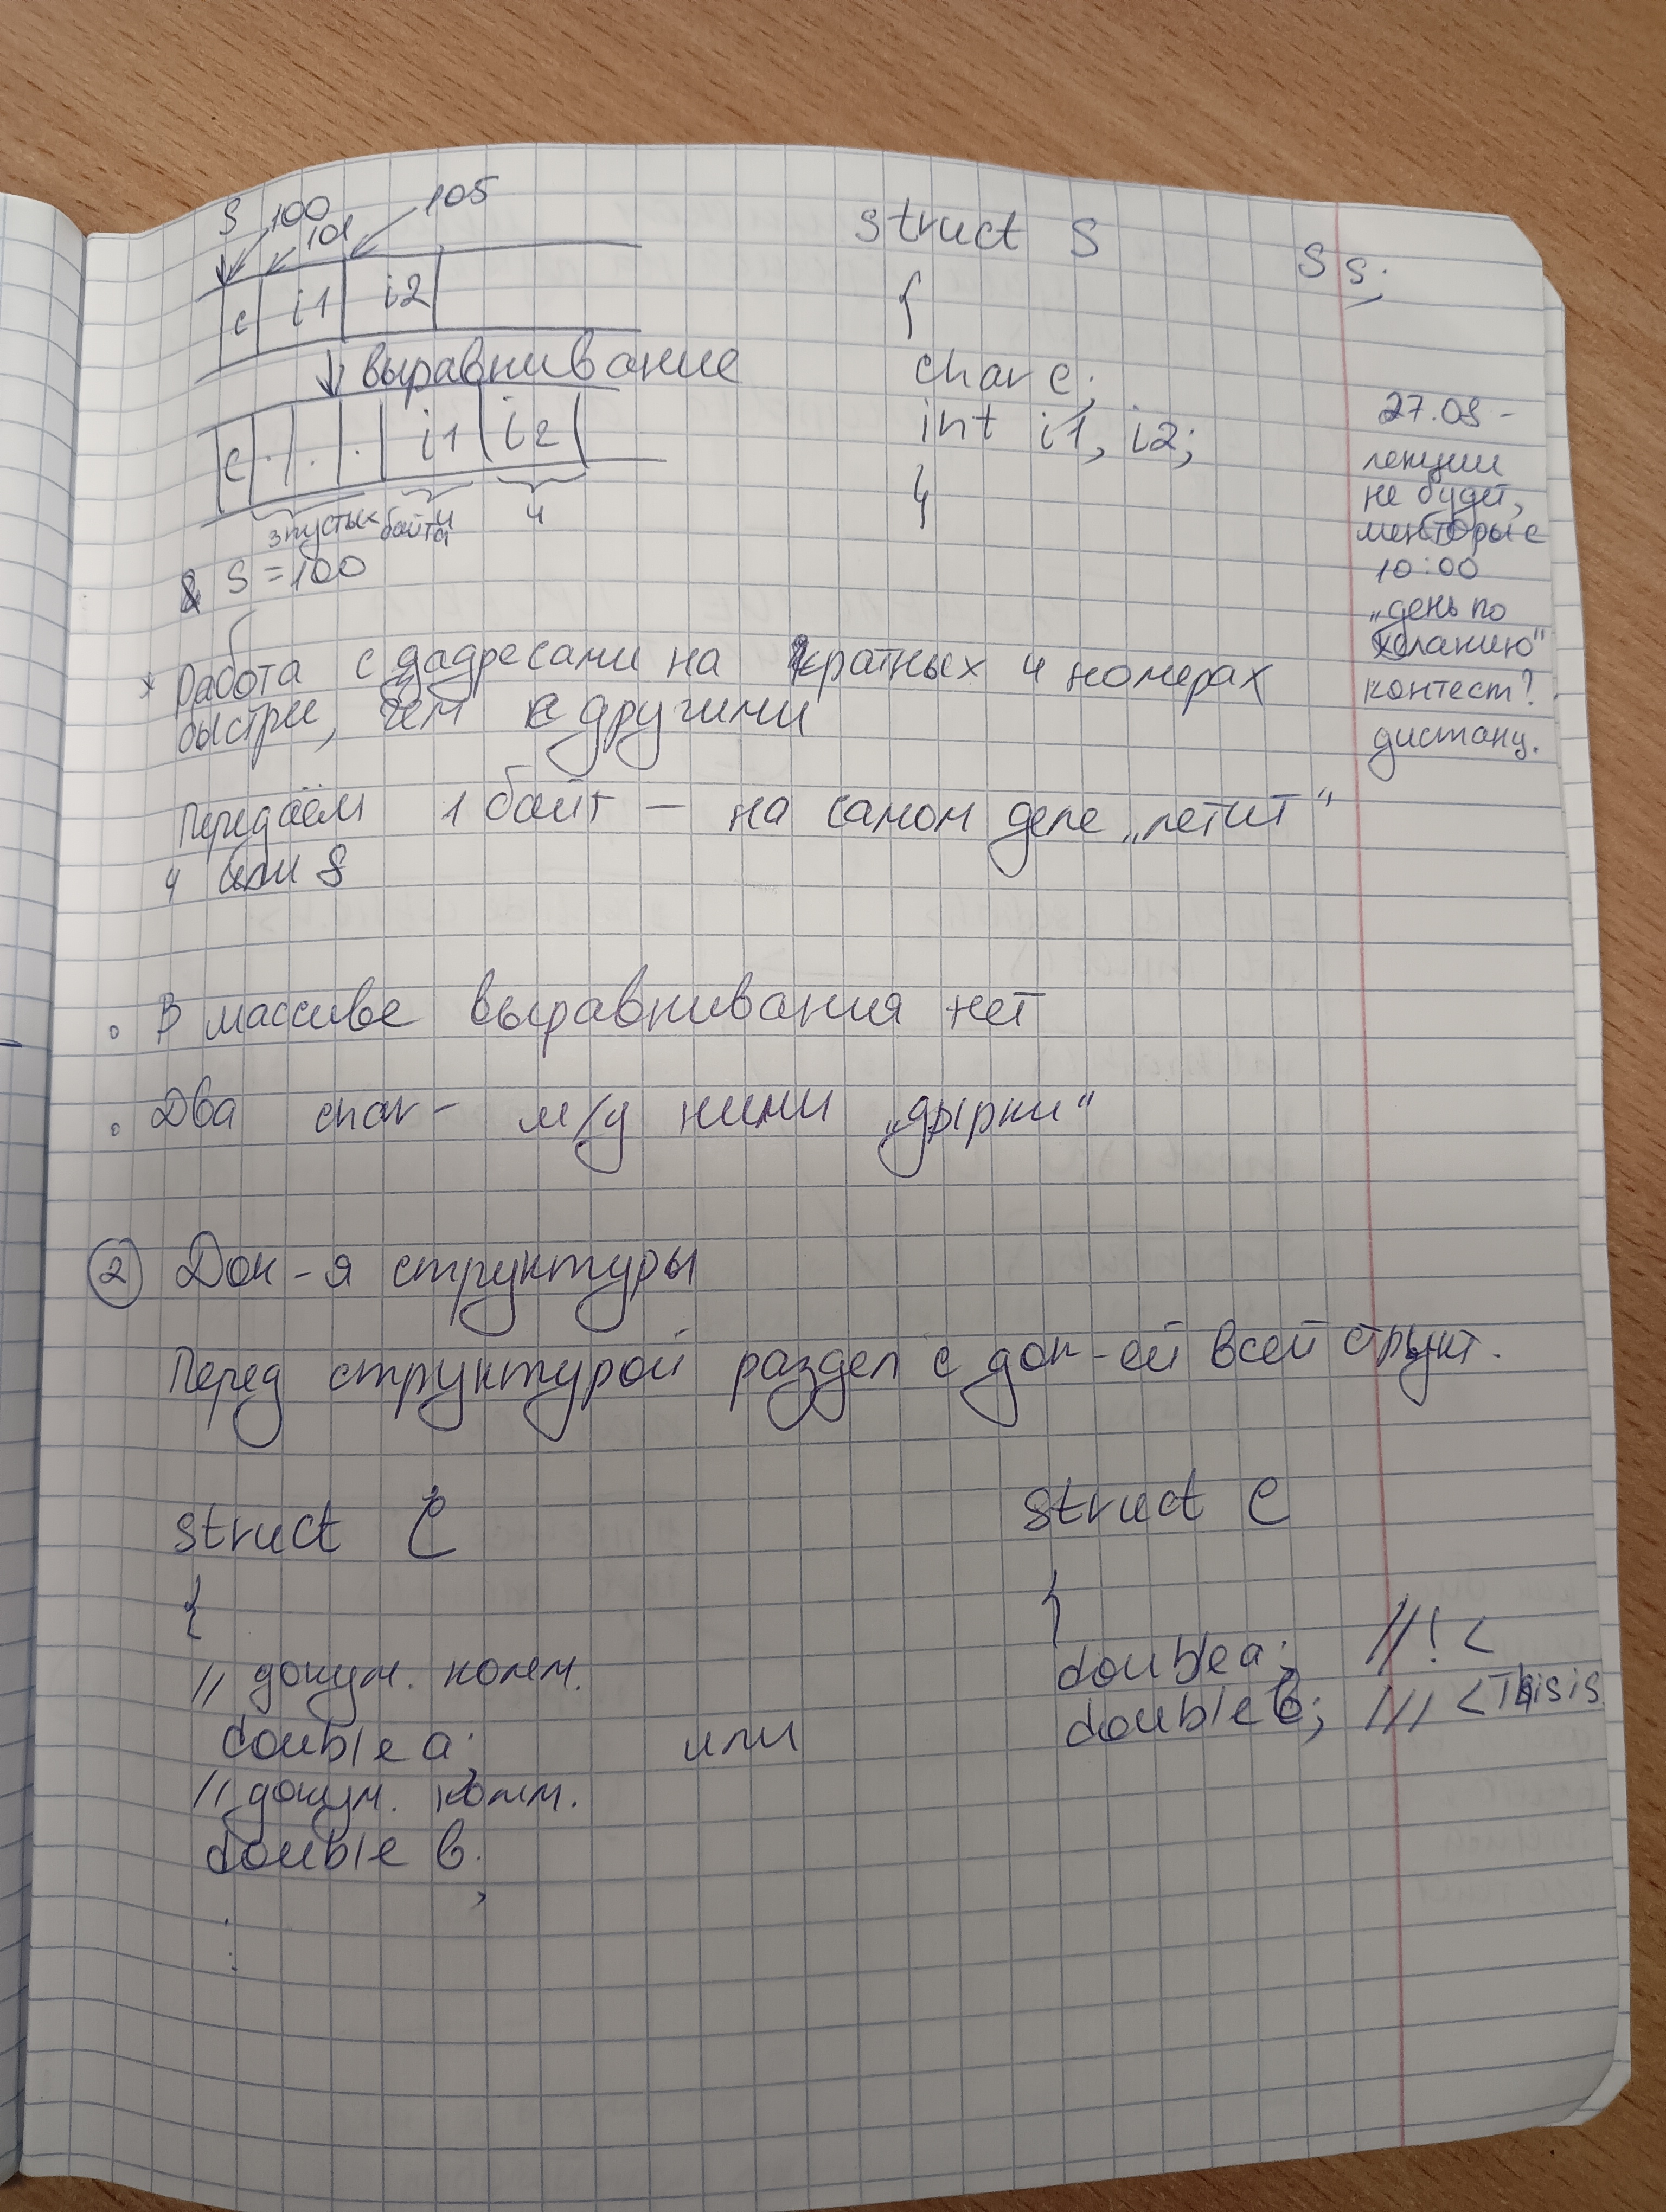 S 100
101
105
c i1 i2
выравнивание
c . . . i1 i2
3 пустых байта 4 4
& S = 100
struct S
{
char c;
int i1, i2;
}
S s;
27.09 –
лекции
не будет,
менторы с
10:00
„день по
желанию“
контест?
дистанц.
* Работа с адресами на кратных 4 номерах
быстрее, чем с другими
Передаём 1 байт — на самом деле „летит“
4 или 8
◦ В массиве выравнивания нет
◦ Два char – м/д ними „дырки“
② Док-я структуры
Перед структурой раздел с док-ей всей структ.
struct C
{
// докум. комм.
double a;
// докум. комм.
double b;
.
:
или
struct C
{
double a; //! <
double b; /// < This is